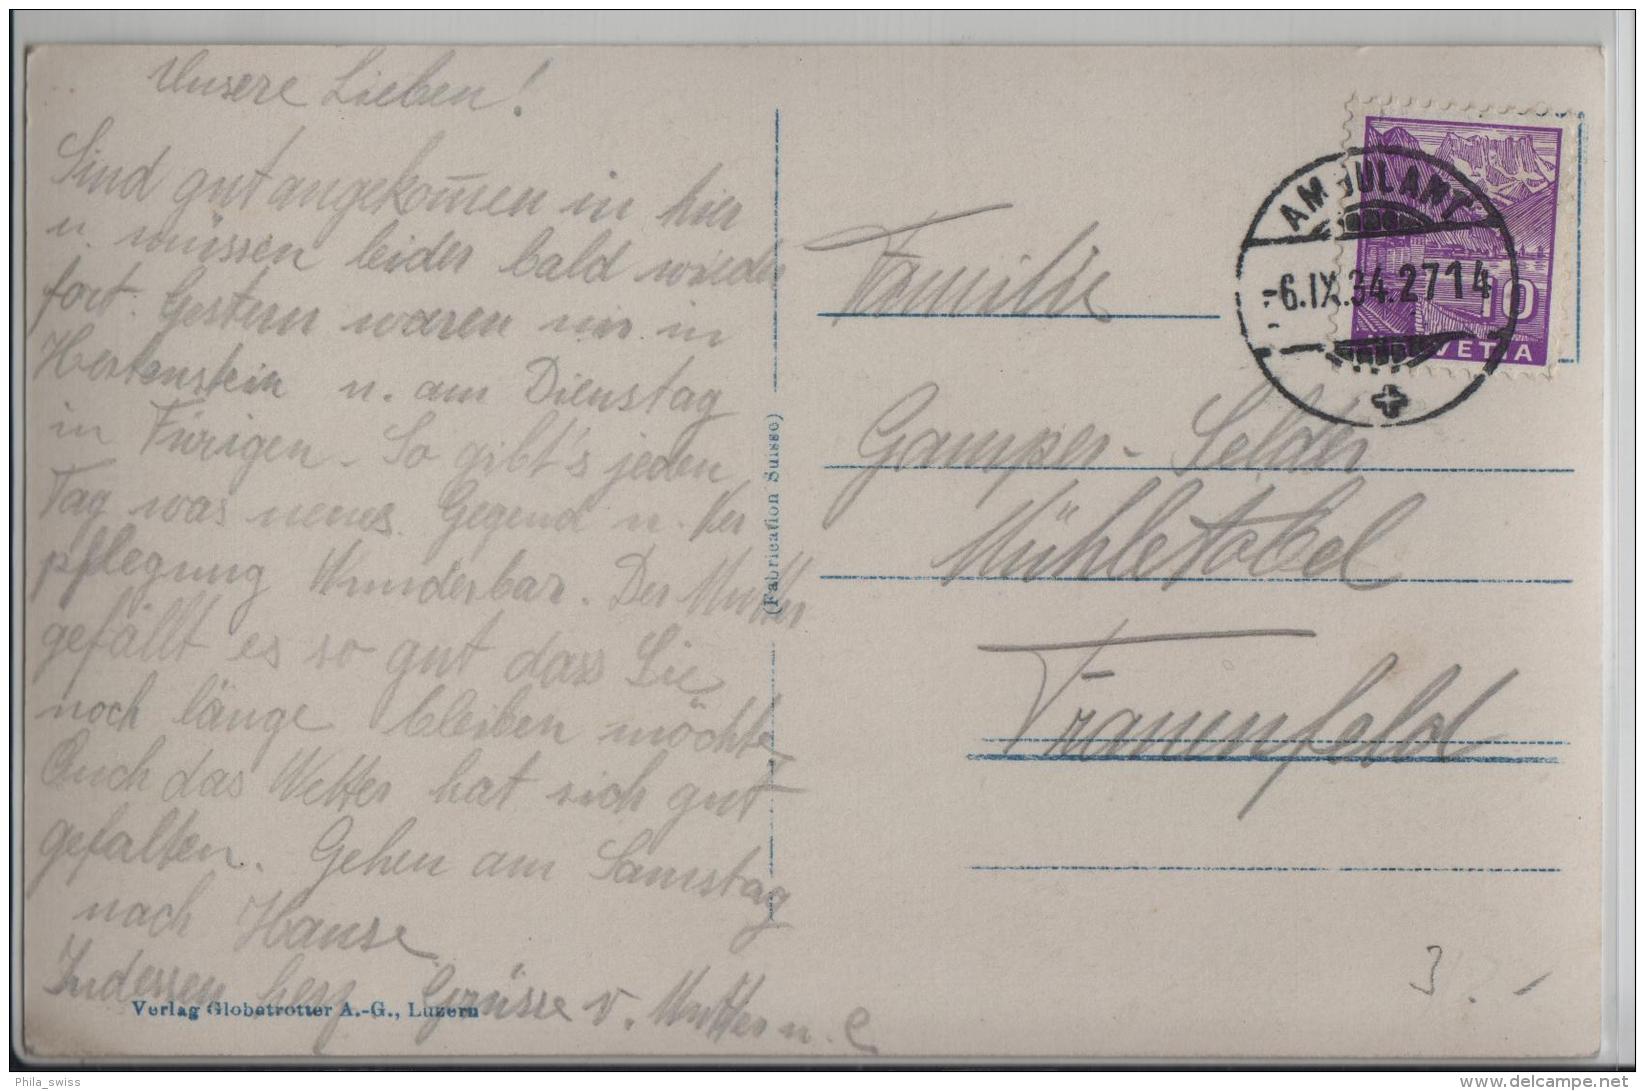 Unsere Lieben!
Sind gut angekom̄en in hier
u. müssen leider bald wieder
fort. Gestern waren wir in
Hertenstein u. am Dienstag
in Fürigen. So gibt's jeden
Tag was neues. Gegend u. Ver
pflegung Wunderbar. Der Mutter
gefällt es so gut dass Sie
noch länge bleiben möchte
Auch das Wetter hat sich gut
gefalten. Gehen am Samstag
nach Hause
Indessen herz Grüsse v. Mutter u. E
Verlag Globetrotter A.-G., Luzern
(Fabrication Suisse)
Familie
Gamper-Selder
Mühletobel
Frauenfeld
AMBULANT
-6.IX.34.2714
10
HELVETIA
3.-
Phila_swiss
delcampe.net